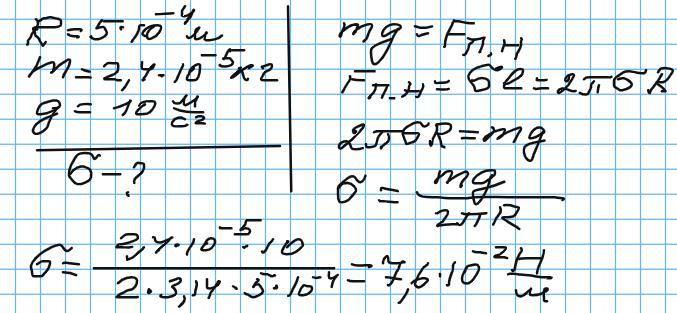 R = 5·10⁻⁴ м
m = 2,4·10⁻⁵ кг
g = 10 м/с²
σ - ?
mg = Fп.н
Fп.н = σl = 2πσR
2πσR = mg
σ = mg / 2πR
σ = 2,4·10⁻⁵·10 / 2·3,14·5·10⁻⁴ = 7,6·10⁻² Н/м